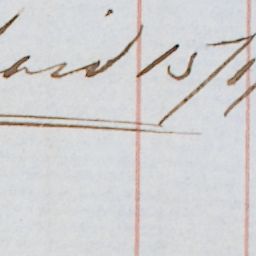 Paid 15/